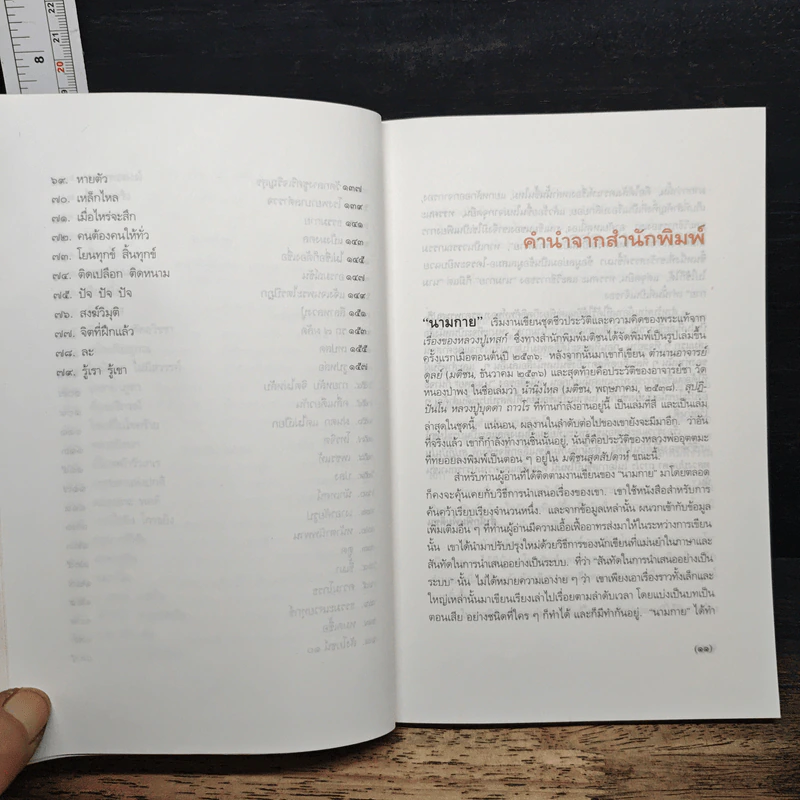 8
22
21
20
๖๙. หายตัว
๗๐. เหล็กไหล
๗๑. เมื่อไหร่จะสึก
๗๒. คนต้องคนให้ทั่ว
๗๓. โยนทุกข์ สิ้นทุกข์
๗๔. ติดเปลือก ติดหนาม
๗๕. ปัจ ปัจ ปัจ
๗๖. สงฆ์วิมุติ
๗๗. จิตที่ฝึกแล้ว
๗๘. ละ
๗๙. รู้เรา รู้เขา
๑๓๗
๑๓๙
๑๔๑
๑๔๓
๑๔๕
๑๔๗
๑๔๙
๑๕๑
๑๕๓
๑๕๕
๑๕๗
คำนำจากสำนักพิมพ์
“นามกาย” เริ่มงานเขียนชุดชีวประวัติและความคิดของพระแท้จาก
เรื่องของหลวงปู่เทสก์ ซึ่งทางสำนักพิมพ์มติชนได้จัดพิมพ์เป็นรูปเล่มขึ้น
ครั้งแรกเมื่อตอนต้นปี ๒๕๓๖. หลังจากนั้นมาเขาก็เขียน ตำนานอาจารย์
ดูลย์ (มติชน, ธันวาคม ๒๕๓๖) และสุดท้ายคือประวัติของอาจารย์ชา วัด
หนองป่าพง ในชื่อเล่มว่า น้ำนิ่งไหล (มติชน, พฤษภาคม, ๒๕๓๘). สุปฏิ-
ปันโน หลวงปู่บุดดา ถาวโร ที่ท่านกำลังอ่านอยู่นี้ เป็นเล่มที่สี่ และเป็นเล่ม
ล่าสุดในชุดนี้. แน่นอน, ผลงานในลำดับต่อไปของเขายังจะมีมาอีก. ว่าอัน
ที่จริงแล้ว เขาก็กำลังทำงานชิ้นนั้นอยู่, นั่นก็คือประวัติของหลวงพ่ออุตตมะ
ที่ทยอยลงพิมพ์เป็นตอน ๆ อยู่ใน มติชนสุดสัปดาห์ ขณะนี้.
สำหรับท่านผู้อ่านที่ได้ติดตามงานเขียนของ “นามกาย” มาโดยตลอด
ก็คงจะคุ้นเคยกับวิธีการนำเสนอเรื่องของเขา. เขาใช้หนังสือสำหรับการ
ค้นคว้าเรียบเรียงจำนวนหนึ่ง. และจากข้อมูลเหล่านั้น ผนวกเข้ากับข้อมูล
เพิ่มเติมอื่น ๆ ที่ท่านผู้อ่านมีความเอื้อเฟื้ออาทรส่งมาให้ในระหว่างการเขียน
นั้น เขาได้นำมาปรับปรุงใหม่ด้วยวิธีการของนักเขียนที่แม่นยำในภาษาและ
สันทัดในการนำเสนออย่างเป็นระบบ. ที่ว่า “สันทัดในการนำเสนออย่างเป็น
ระบบ” นั้น ไม่ได้หมายความเอาง่าย ๆ ว่า เขาเพียงเอาเรื่องราวทั้งเล็กและ
ใหญ่เหล่านั้นมาเขียนเรียงเล่าไปเรื่อยตามลำดับเวลา โดยแบ่งเป็นบทเป็น
ตอนเสีย อย่างชนิดที่ใคร ๆ ก็ทำได้ และก็มีทำกันอยู่. “นามกาย” ได้ทำ
(๑๑)